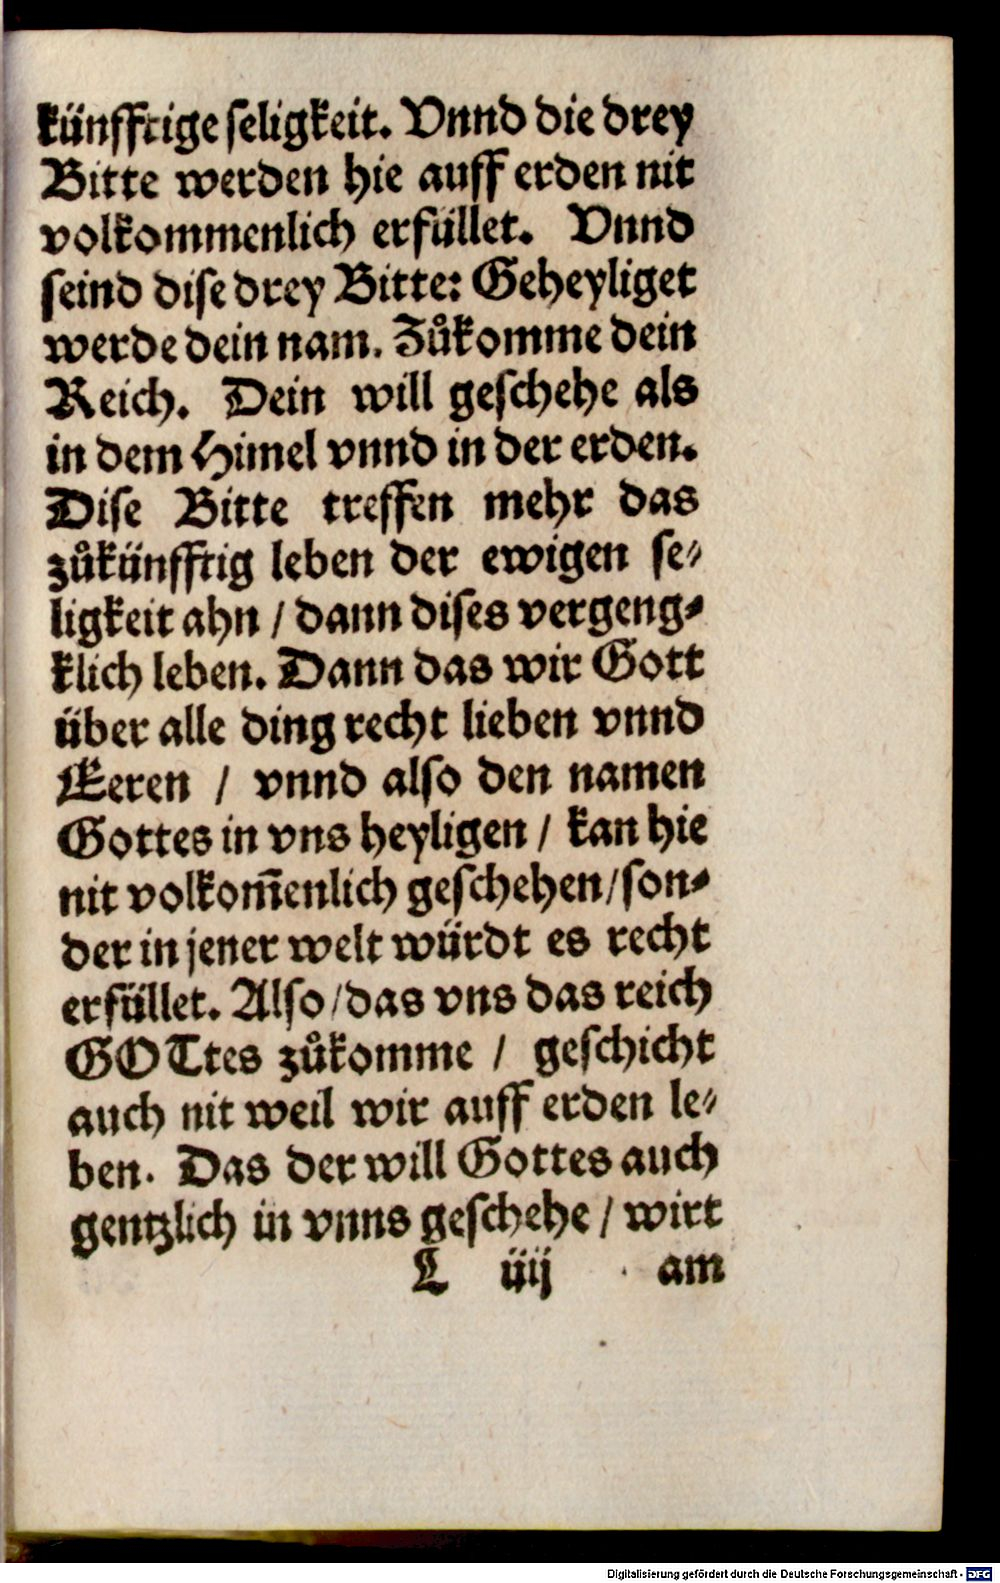 künfftige seligkeit. Vnnd die drey
Bitte werden hie auff erden nit
volkommenlich erfüllet. Vnnd
seind dise drey Bitte: Geheyliget
werde dein nam. Zůkomme dein
Reich. Dein will geschehe als
in dem Himel vnnd in der erden.
Dise Bitte treffen mehr das
zůkünfftig leben der ewigen se⸗
ligkeit ahn / dann dises vergeng⸗
klich leben. Dann das wir Gott
über alle ding recht lieben vnnd
Eeren / vnnd also den namen
Gottes in vns heyligen / kan hie
nit volkom̃enlich geschehen / son⸗
der in jener welt würdt es recht
erfüllet. Also / das vns das reich
GOTtes zůkomme / geschicht
auch nit weil wir auff erden le⸗
ben. Das der will Gottes auch
gentzlich in vnns geschehe / wirt
L iiij am
Digitalisierung gefördert durch die Deutsche Forschungsgemeinschaft - DFG